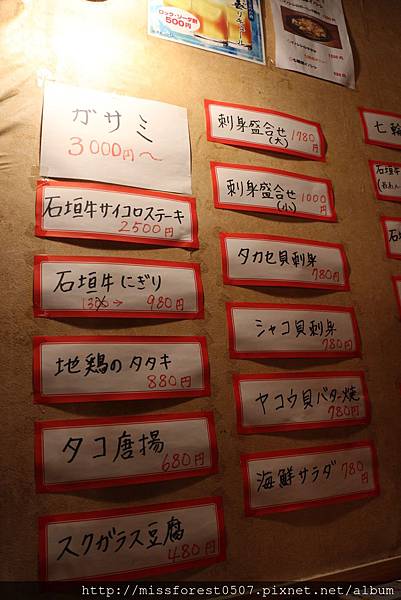 ロック・ソーダ割
500円
ガサミ
3000円〜
石垣牛サイコロステーキ
2500円
石垣牛にぎり
1380→980円
地鶏のタタキ
880円
タコ唐揚
680円
スクガラス豆腐
480円
刺身盛合せ
(大) 1780円
刺身盛合せ 1000円
(小)
タカセ貝刺身
780円
シャコ貝刺身
780円
ヤコウ貝バター焼
780円
海鮮サラダ 780円
七輪
石垣牛
石垣
http://missforest0507.pixnet.net/album